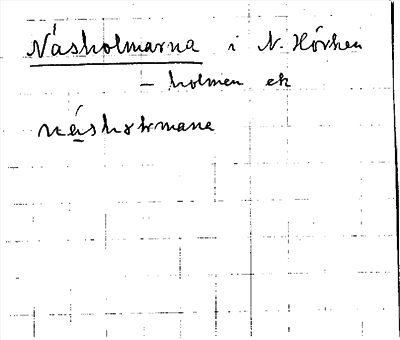 Näsholmarna i N. Hörken
– holmen ek
näshołmana